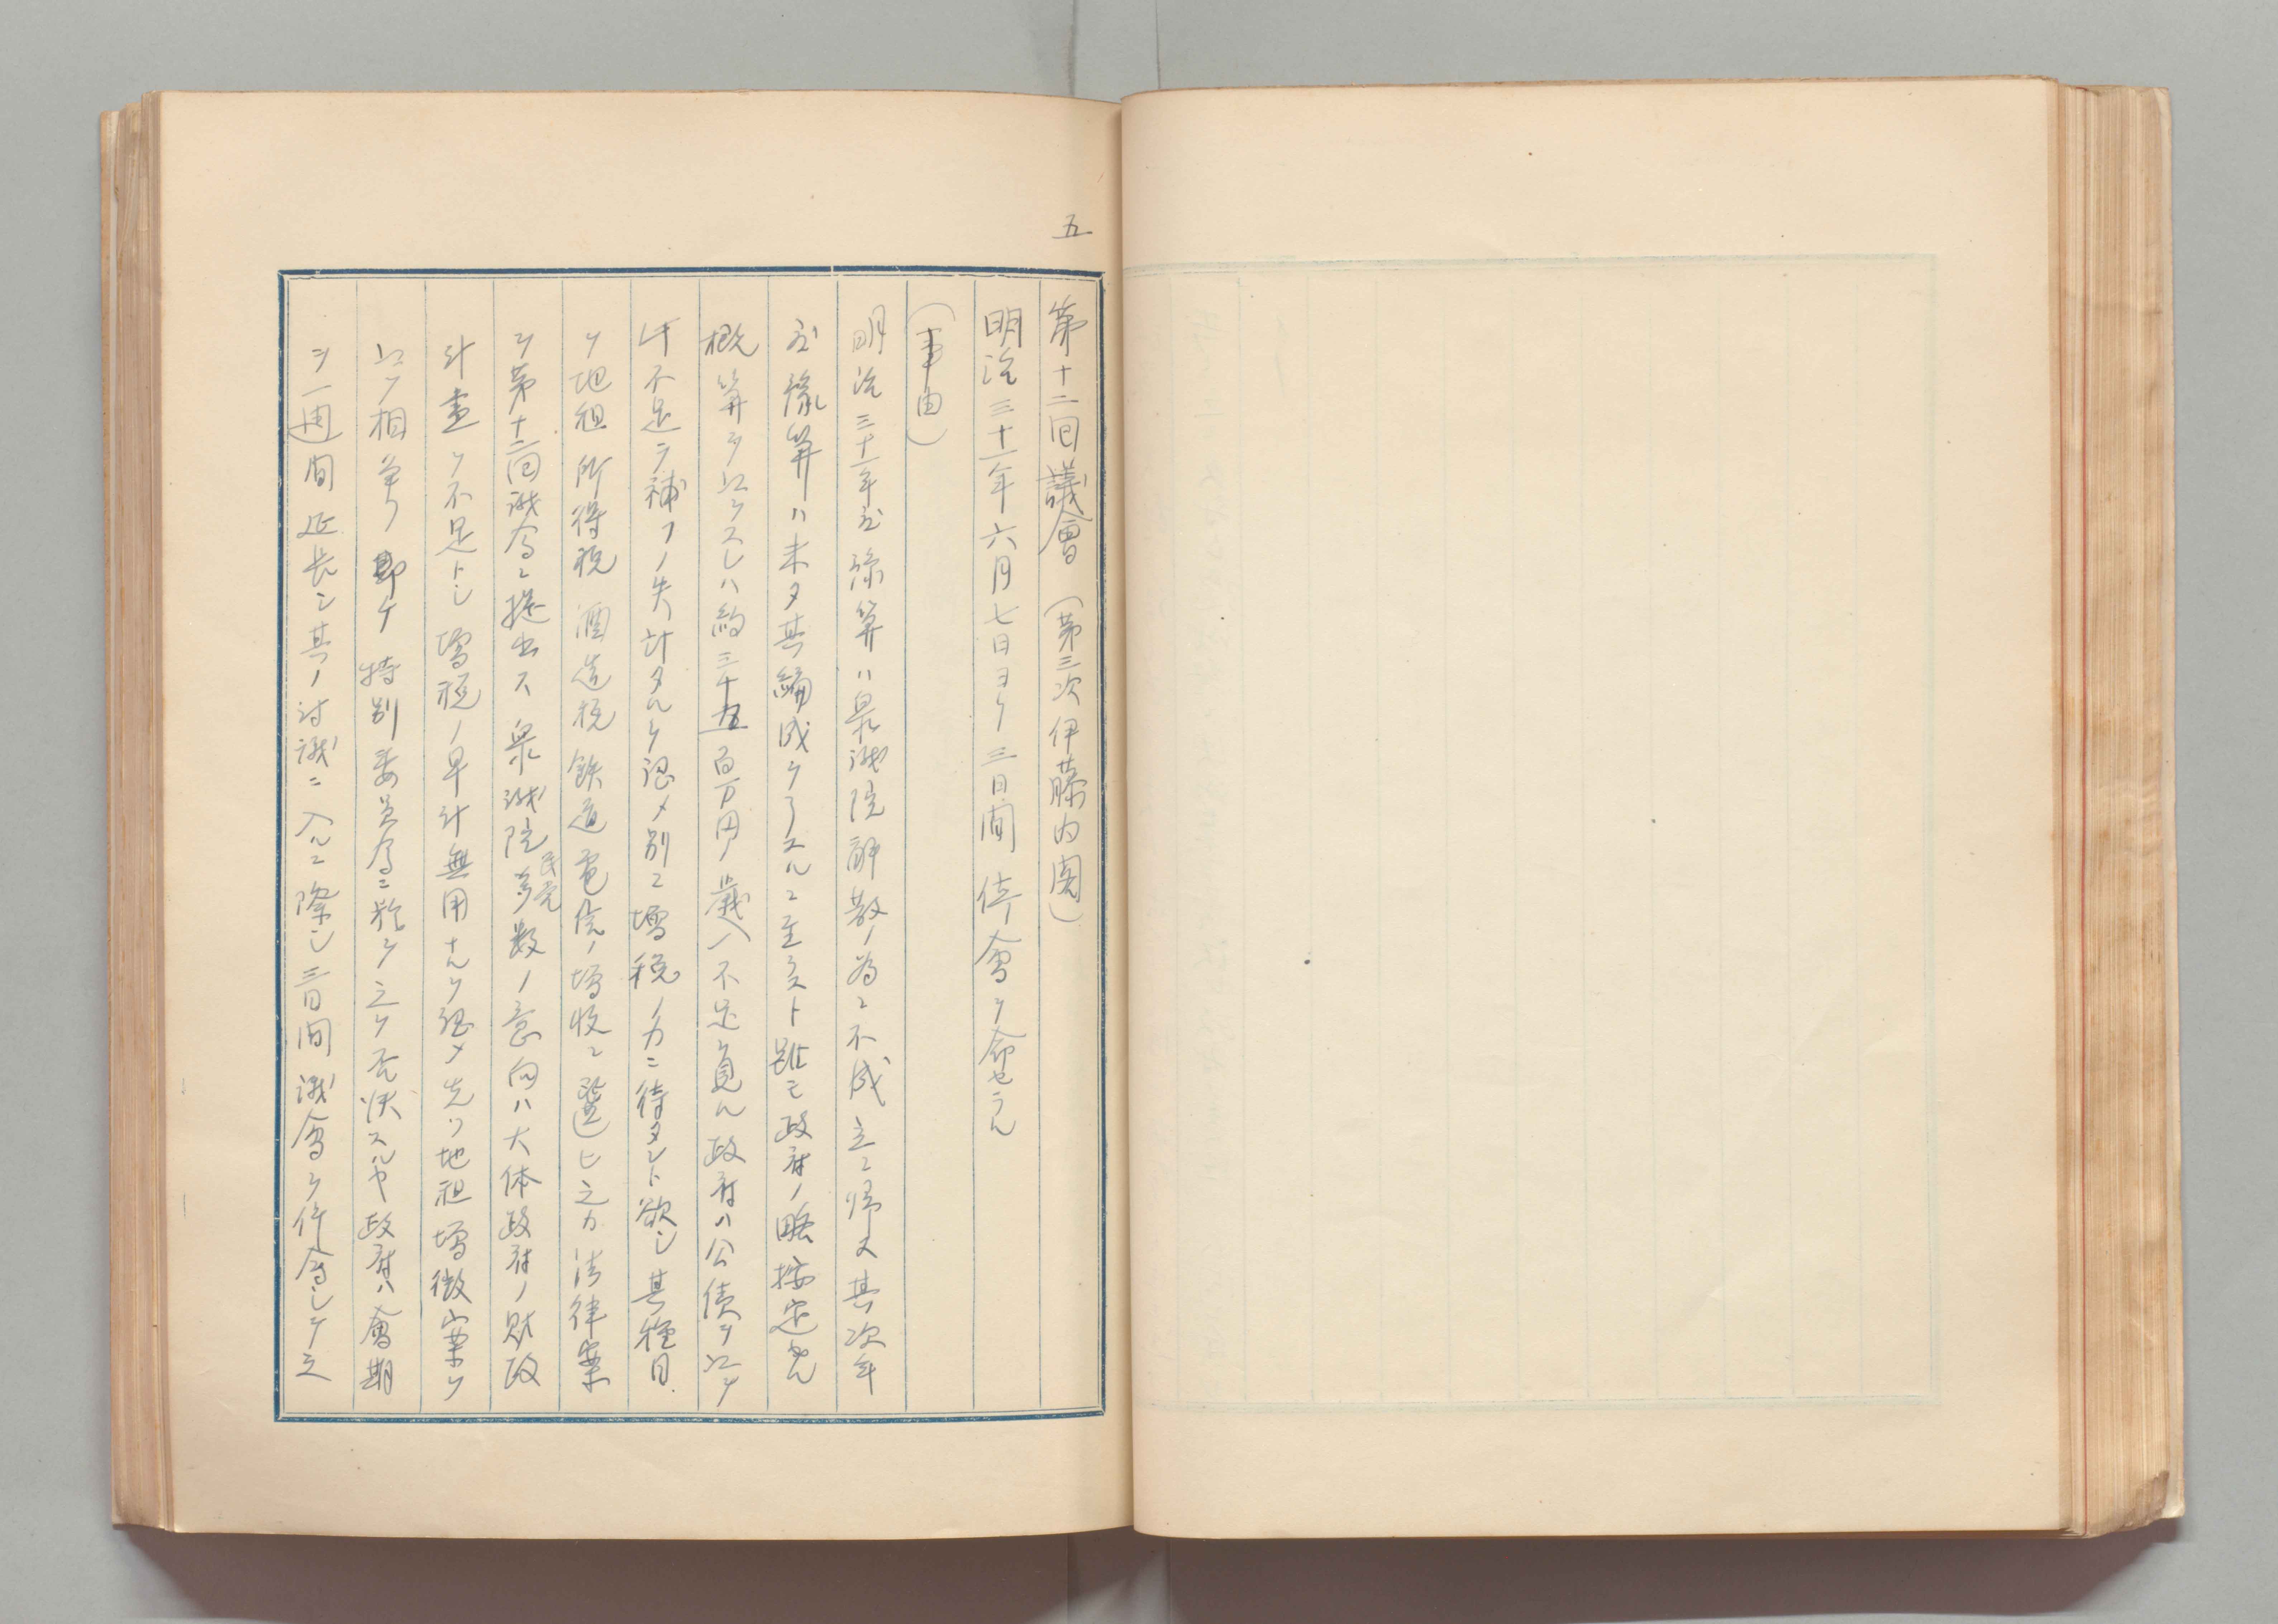 五
第十二回議會（第三次伊藤内閣）
明治三十一年六月七日ヨリ三日間停會ヲ命セラル
（事由）
明治三十一年度予算ハ衆議院解散ノ為ニ不成立ニ帰ス其次年
度予算ハ未タ其編成ヲ了スルニ至ラスト雖モ政府ノ略按定セル
概算ヲ以テスレハ約三千五百万円ノ歳入不足ヲ見ル政府ハ公債ヲ以テ
此不足ヲ補フノ失計タルヲ認メ別ニ増税ノ力ニ待タント欲シ其種目
ヲ地租所得税酒造税鉄道電信ノ増収ニ選ヒ之カ法律案
ヲ第十二回議會ニ提出ス衆議院民党多数ノ意向ハ大体政府ノ財政
計畫ヲ不足トシ増税ノ早計無用ナルヲ認メ先ツ地租増徴案ヲ
以テ相争フ即チ特別委員會ニ於テ之ヲ否決スルヤ政府ハ會期
ヲ一週間延長シ其ノ討議ニ入ルニ際シ三日間議會ヲ停會シテ之